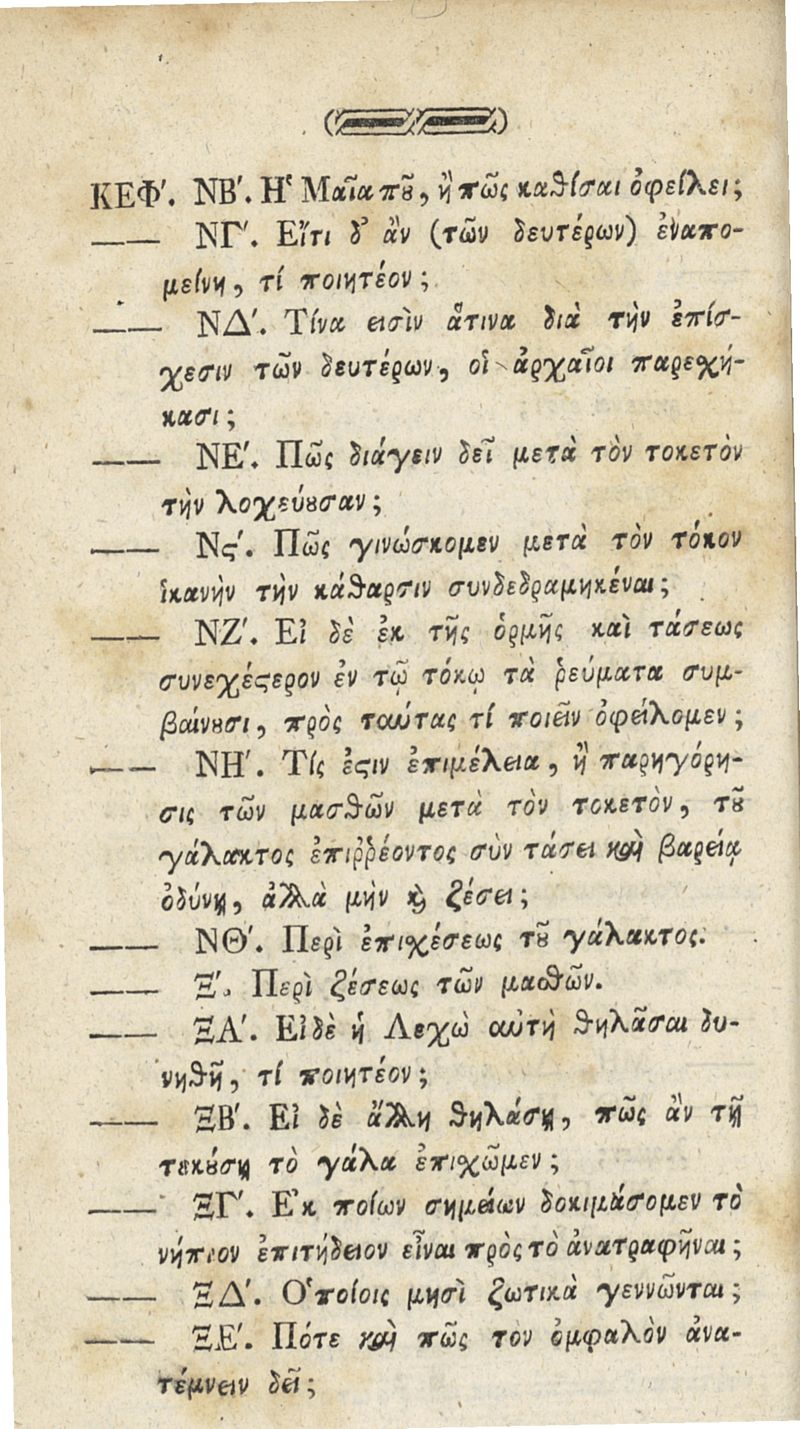 ΚΕΦ΄. ΝΒ΄. Η῾ Μαῖα πȣ͂, ἢ πῶς καθίσαι ὀφείλει;
—— ΝΓ΄. Εἴτι δ᾽ ἂν (τῶν δευτέρων) ἐναπο-
μείνῃ, τί ποιητέον;
—— ΝΔ΄. Τίνα εισὶν ἅτινα διὰ τὴν ἐπίσ-
χεσιν τῶν δευτέρων, οἱ ἀρχαῖοι παρεχή-
κασι;
—— ΝΕ΄. Πῶς διάγειν δεῖ μετὰ τὸν τοκετὸν
τὴν λοχεύȣσαν;
—— Νϛ΄. Πῶς γινώσκομεν μετὰ τὸν τόκον
ἱκανὴν τὴν κάθαρσιν συνδεδραμηκέναι;
—— ΝΖ΄. Εἰ δὲ ἐκ τῆς ὁρμῆς καὶ τάσεως
συνεχέϛερον ἐν τῷ τόκῳ τὰ ῥεύματα συμ-
βαίνȣσι, πρὸς ταύτας τί ποιεῖν ὀφείλομεν;
—— ΝΗ΄. Τίς ἐϛιν ἐπιμέλεια, ἢ παρηγόρη-
σις τῶν μασθῶν μετὰ τὸν τοκετὸν, τȣ͂
γάλακτος ἐπιῤῥέοντος σὺν τάσει καὶ βαρείᾳ
ὀδύνῃ, ἀλλὰ μὴν ϗ̀ ζέσει;
—— ΝΘ΄. Περὶ ἐπιχέσεως τȣ͂ γάλακτος.
—— Ξ΄. Περὶ ζέσεως τῶν μασθῶν.
—— ΞΑ΄. Εἰδὲ ἡ Λεχὼ αὐτὴ θηλᾶσαι δυ-
νηθῇ, τί ποιητέον;
—— ΞΒ΄. Εἰ δὲ ἄλλη θηλάσῃ, πῶς ἂν τῇ
τεκȣσῃ τὸ γάλα ἐπιχῶμεν;
—— ΞΓ΄. Ε᾽κ ποίων σημείων δοκιμάσομεν τὸ
νήπιον ἐπιτήδειον εἶναι πρὸς τὸ ἀνατραφῆναι;
—— ΞΔ΄. Ο῾ποίοις μησὶ ζωτικὰ γεννῶνται;
—— ΞΕ΄. Πότε καὶ πῶς τὸν ὀμφαλὸν ἀνα-
τέμνειν δεῖ;